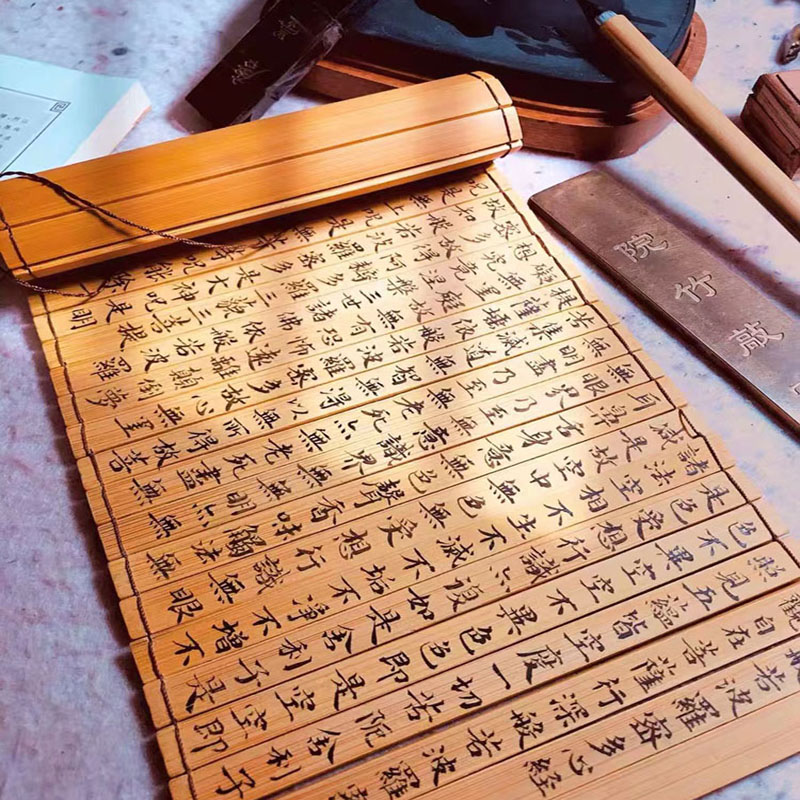 般若波羅密多心經
觀自在菩薩行深般若波羅
照見五蘊皆空度一切苦阨舍利子
色不異空空不異色色即是空空即
是色受想行識亦復如是舍利子是
諸法空相不生不滅不垢不淨不增不
減是故空中無色無受想行識無眼
耳鼻舌身意無色聲香味觸法無
眼界乃至無意識界無無明亦無
無明盡乃至無老死亦無老死盡無苦
集滅道無智亦無得以無所得故菩
提薩埵依般若波羅密多故心無罣
礙無罣礙故無有恐怖遠離顛倒夢
想究竟涅槃三世諸佛依般若波羅
密多故得阿耨多羅三藐三菩提
故知般若波羅密多是大神呪是大明
呪是無上呪是無等
院仔敲